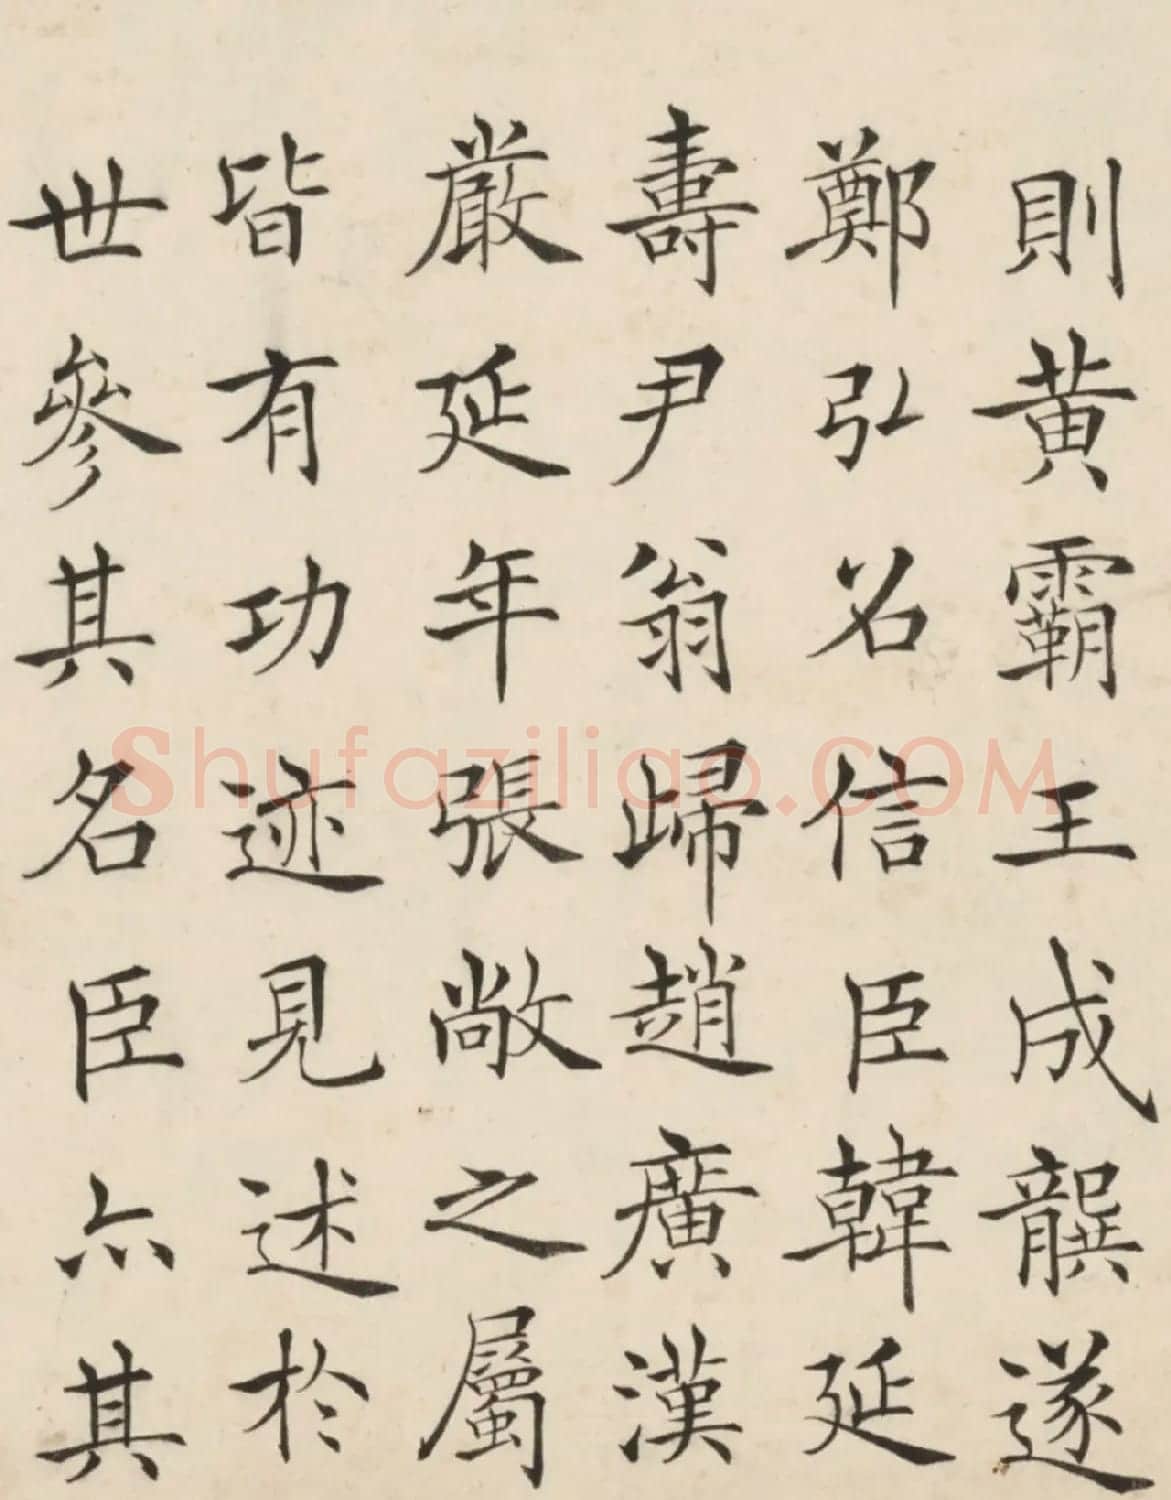 則黃霸王成龔遂
鄭弘召信臣韓延
壽尹翁歸趙廣漢
嚴延年張敞之屬
皆有功迹見述於
世參其名臣亦其
Shufaziliao.COM